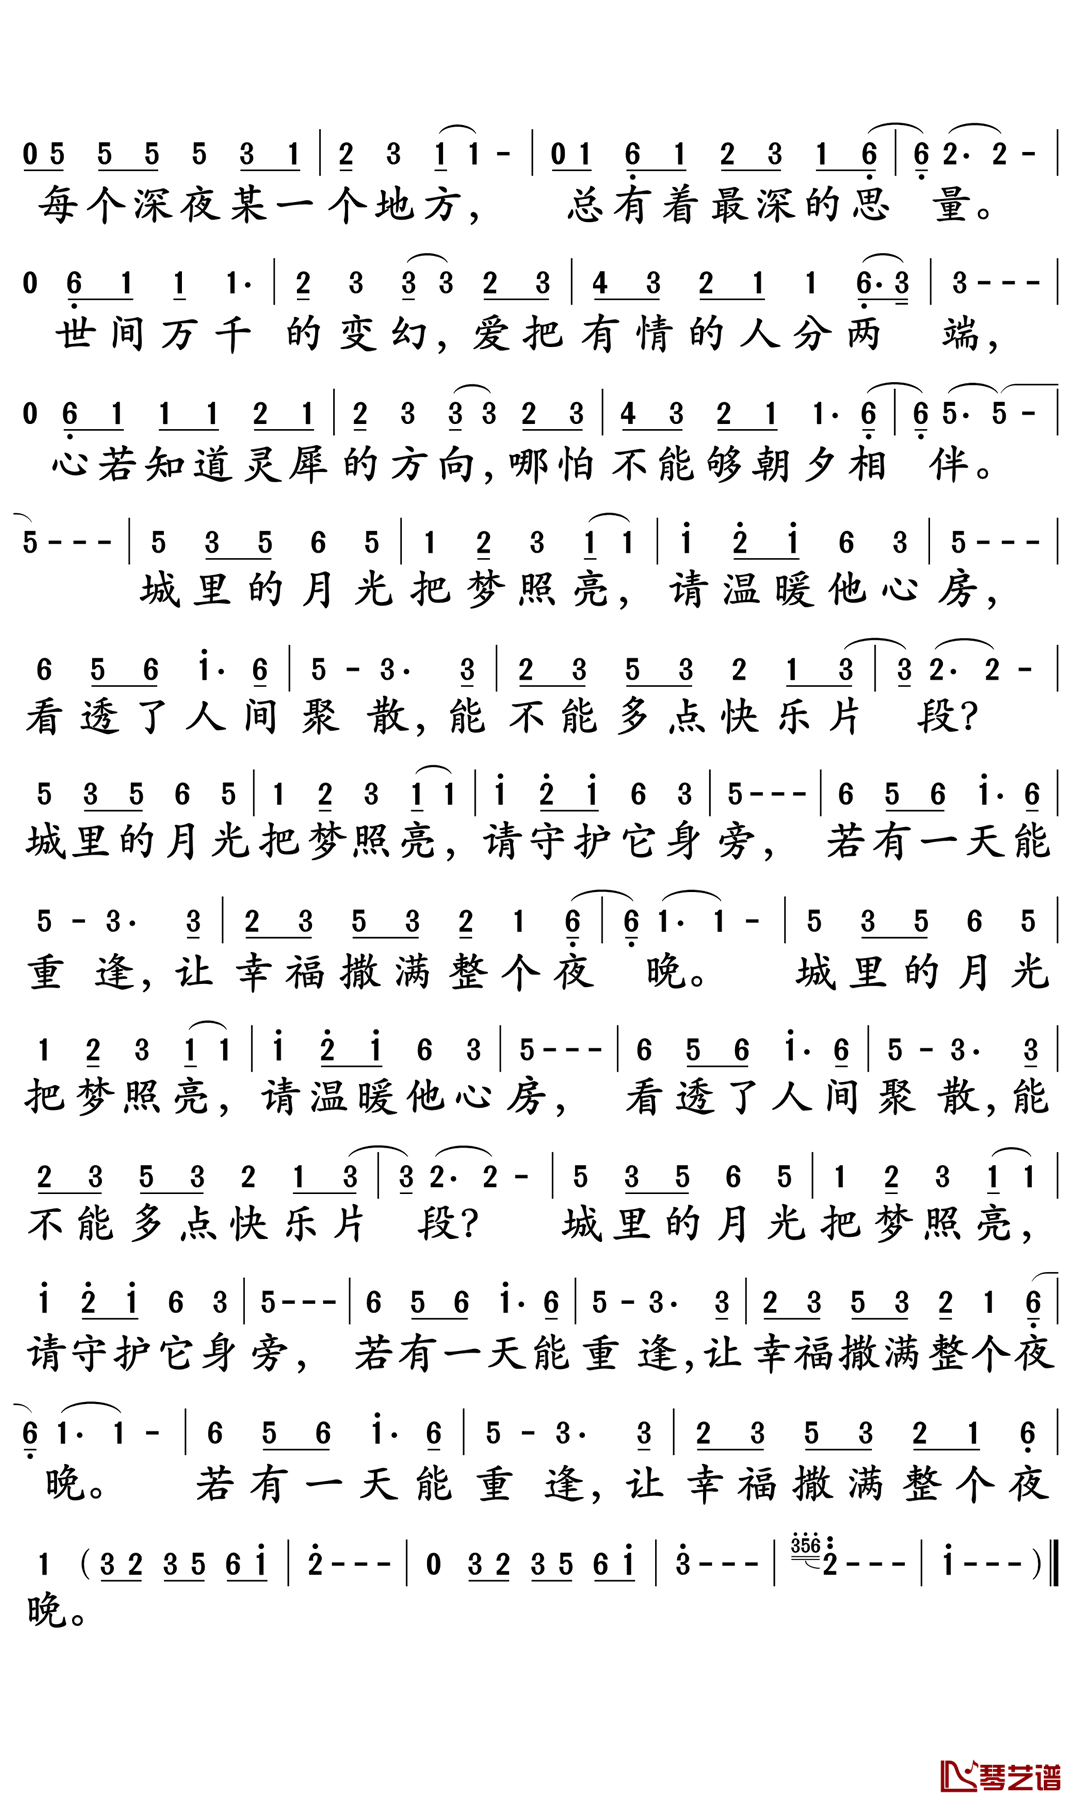 0 5 5 5 5 3 1 | 2 3 1 1 - | 0 1 6 1 2 3 1 6 | 6 2· 2 - |
每个深夜某一个地方， 总有着最深的思 量。
0 6 1 1 1· | 2 3 3 3 2 3 | 4 3 2 1 1 6· 3 | 3 - - - |
世间万千 的变幻，爱把有情的人分两 端，
0 6 1 1 1 2 1 | 2 3 3 3 2 3 | 4 3 2 1 1· 6 | 6 5· 5 - |
心若知道灵犀的方向，哪怕不能够朝夕相 伴。
5 - - - | 5 3 5 6 5 | 1 2 3 1 1 | i 2 i 6 3 | 5 - - - |
城里的月光把梦照亮，请温暖他心房，
6 5 6 i· 6 | 5 - 3· 3 | 2 3 5 3 2 1 3 | 3 2· 2 - |
看透了人间聚散，能不能多点快乐片 段？
5 3 5 6 5 | 1 2 3 1 1 | i 2 i 6 3 | 5 - - - | 6 5 6 i· 6 |
城里的月光把梦照亮，请守护它身旁， 若有一天能
5 - 3· 3 | 2 3 5 3 2 1 6 | 6 1· 1 - | 5 3 5 6 5 |
重逢，让幸福撒满整个夜 晚。 城里的月光
1 2 3 1 1 | i 2 i 6 3 | 5 - - - | 6 5 6 i· 6 | 5 - 3· 3 |
把梦照亮，请温暖他心房， 看透了人间聚散，能
2 3 5 3 2 1 3 | 3 2· 2 - | 5 3 5 6 5 | 1 2 3 1 1 |
不能多点快乐片 段？ 城里的月光把梦照亮，
i 2 i 6 3 | 5 - - - | 6 5 6 i· 6 | 5 - 3· 3 | 2 3 5 3 2 1 6 |
请守护它身旁， 若有一天能重逢，让幸福撒满整个夜
6 1· 1 - | 6 5 6 i· 6 | 5 - 3· 3 | 2 3 5 3 2 1 6 |
晚。 若有一天能重逢，让幸福撒满整个夜
1 (3 2 3 5 6 i | 2 - - - | 0 3 2 3 5 6 i | 3 - - - | 356 2 - - - | i - - - )‖
晚。
琴艺谱